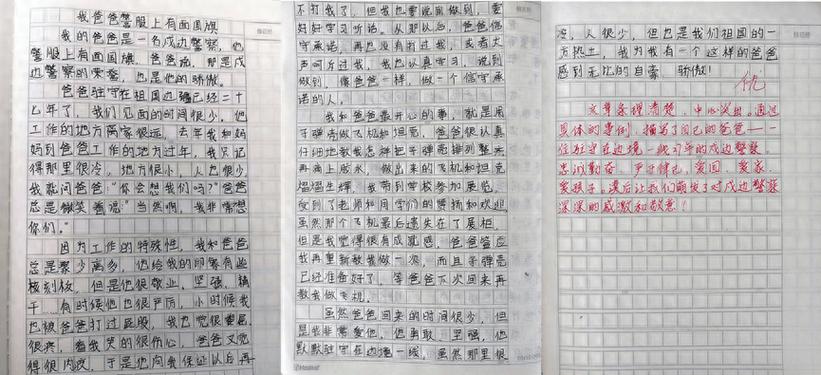 我爸爸警服上有面国旗
我的爸爸是一名戍边警察，他
警服上有面国旗，爸爸说，那是戍
边警察的荣誉，也是他的骄傲。
爸爸驻守在祖国边疆已经二十
七年了，我们见面的时间很少，他
工作的地方离家很远，去年我和妈
妈到爸爸工作的地方过年，我只记
得那里很冷，地方很小，人也很少
我就问爸爸“你会想我们吗？”爸爸
总是微笑着说“当然啊，我非常想
你们。”
因为工作的特殊性，我和爸爸
总是聚少离多，他给我的印象有些
模刻，但是他很敬业，坚强，精
干，有时候他也很严厉，小时候我
也被爸爸打过屁股，我也觉很委屈
很疼，看我哭的很伤心，爸爸又觉
得很内疚，于是他向我保证以后再
不打我了，但我也要说到做到，要
好好学习听话。从那以后，爸爸信
守承诺，再也没有打过我，或者大
声呵斥过我，我也认真学习，说到
做到，像爸爸一样，做一个信守承
诺的人。
我和爸爸最开心的事，就是用
子弹壳做飞机和坦克，爸爸很认真
仔细地教我怎样把子弹壳排列整齐
再滴上胶水，做出来的飞机和坦克
熠熠生辉，我带到学校参加展览，
受到了老师和同学们的赞扬和欢迎
虽然那个飞机最后遗失在了展柜，
但是我觉得很有成就感，爸爸答应
我再重新教我做一次，而且子弹壳
已经准备好了，等爸爸下次回来再
教我做飞机。
虽然爸爸回来的时间很少，但
是我非常爱他，他勇敢、坚强，他
默默驻守在边境一线，虽然那里很
凉，人很少，但也是我们祖国的一
方热土，我为我有一个这样的爸爸
感到无比的自豪、骄傲！
优
文章条理清楚，中心突出。通过
具体的事例，描写了自己的爸爸——一
位驻守在边境一线27年的戍边警察，
忠诚勤奋，严于律己，爱国，爱家，
爱孩子。最后让我们萌发了对戍边警察
深深的感激和敬意！